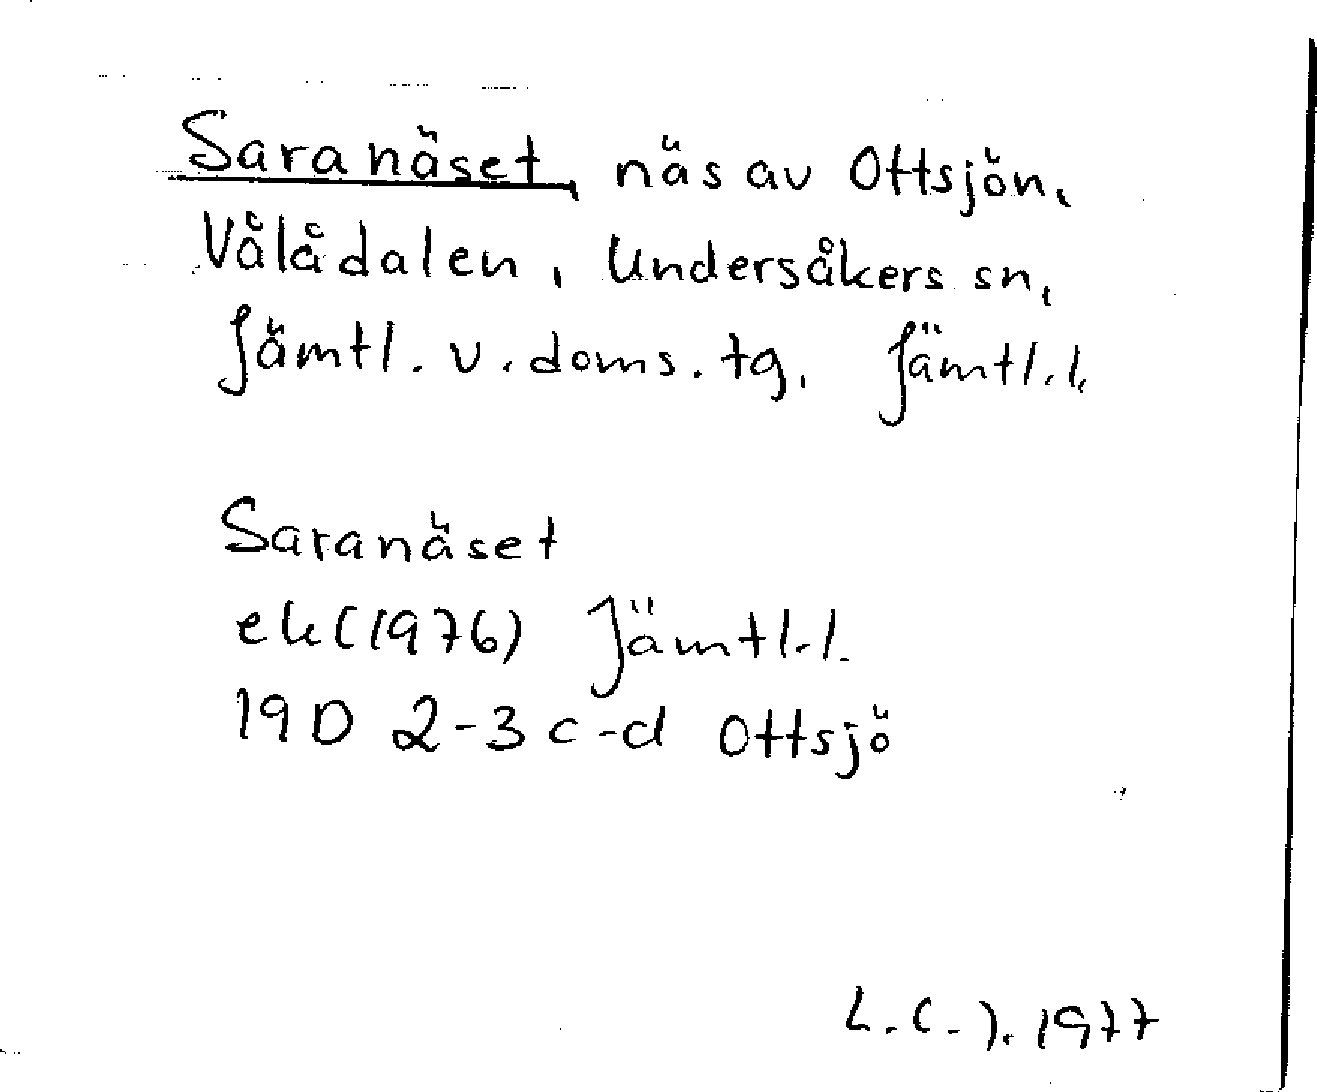 Saranäset, näs av Ottsjön,
Vålådalen, Undersåkers sn,
Jämtl. v. doms. tg, Jämtl. l.
Saranäset
ek (1976) Jämtl. l.
19D 2-3 c-d Ottsjö
L. C. J. 1977